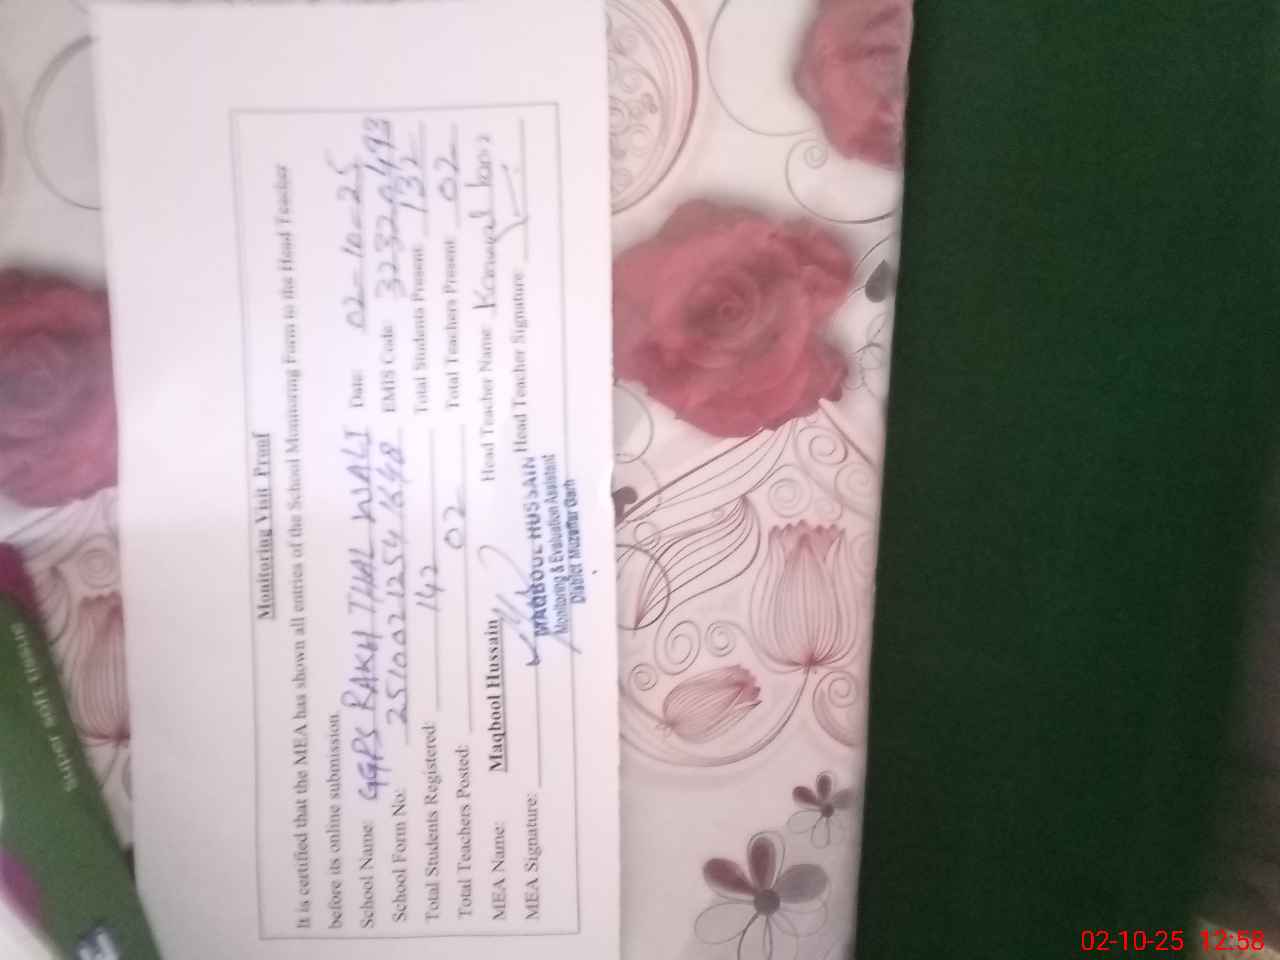 Monitoring Visit Proof
It is certified that the MEA has shown all entries of the School Monitoring Form to the Head Teacher
before its online submission.
School Name: GGPS RAKH THAL WALI Date: 02-10-25
School Form No: 25100212541648 EMIS Code 32320493
Total Students Registered: 142 Total Students Present 132
Total Teachers Posted: 02 Total Teachers Present 02
MEA Name: Maqbool Hussain Head Teacher Name Kanwal
MEA Signature: Head Teacher Signature
MAQBOOL HUSSAIN
Monitoring & Evaluation Assistant
District Muzaffar Garh
super soft tissue
02-10-25 12:58